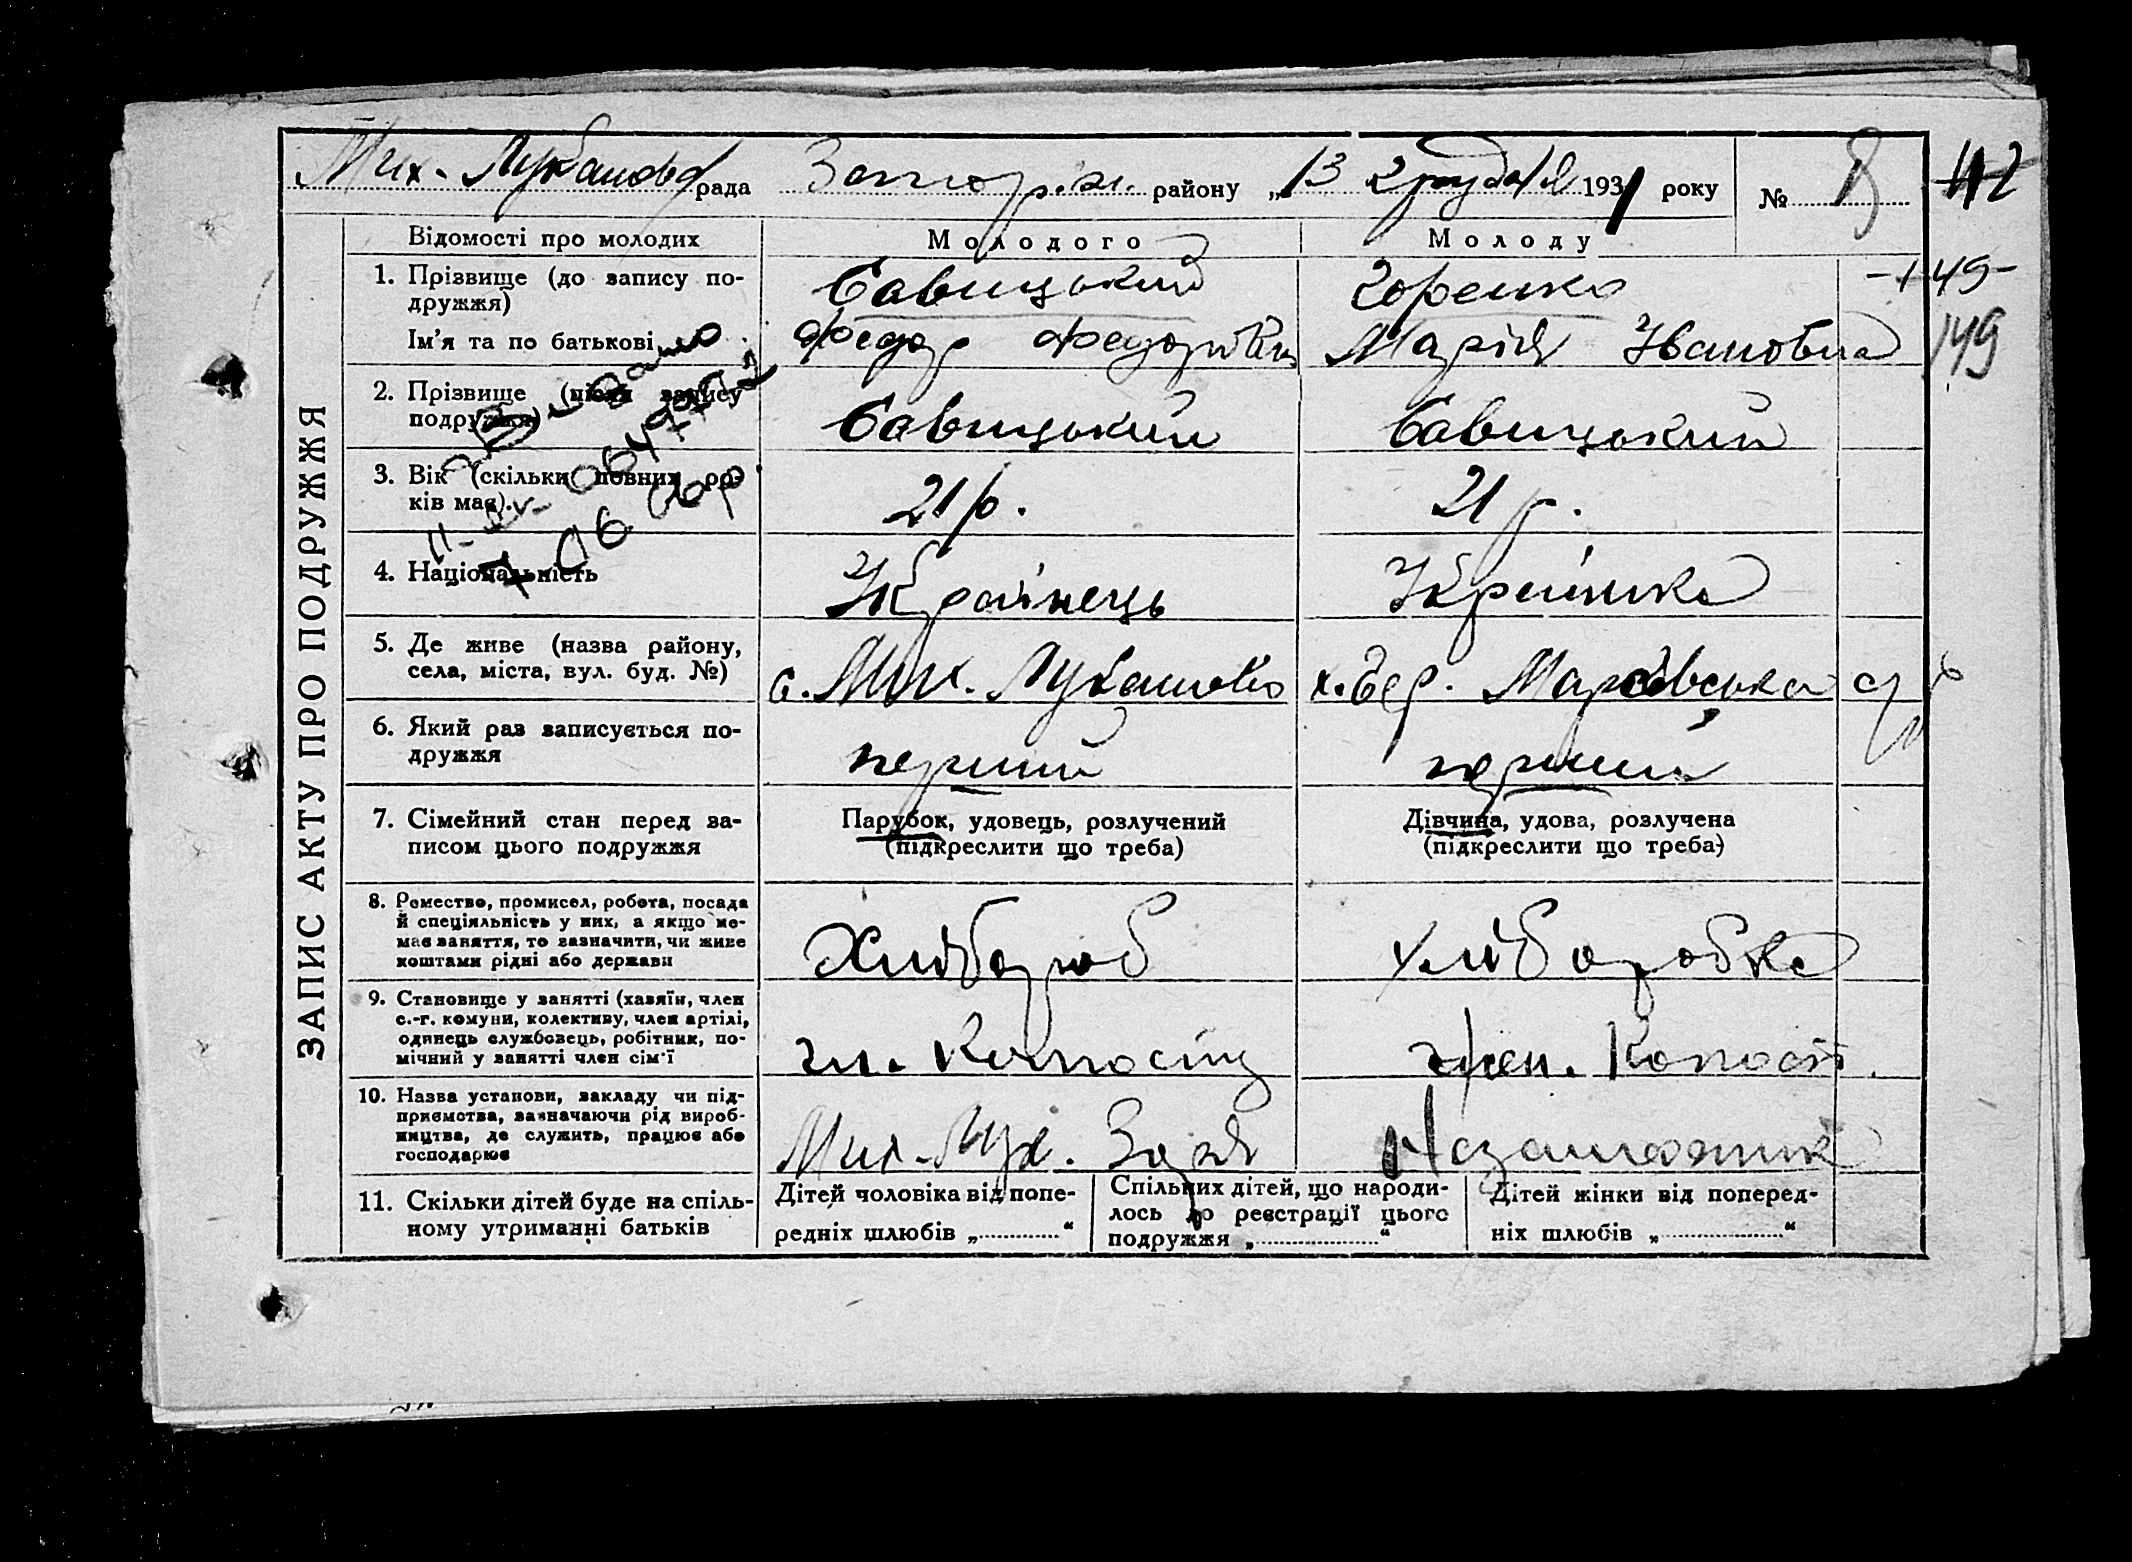 ЗАПИС АКТУ ПРО ПОДРУЖЖЯ
Мих-Лукашовс рада Запоріж. району „13 грудня 1931 року № 8 42
Відомості про молодих Молодого Молоду
1. Прізвище (до запису по-
дружжя) Савицький Горенко -149-
Ім'я та по батькові Федор Федорович Марія Ивановна 149
2. Прізвище (після запису
подружжя) Савицький Савицький
3. Вік (скільки повних ро-
ків має). 21 р. 21 р.
4. Національність Українець Українка
5. Де живе (назва району,
села, міста, вул. буд. №) с. Мих. Лукашово х. Вер. с/р
6. Який раз записується по-
дружжя перший перший
7. Сімейний стан перед за-
писом цього подружжя
Парубок, удовець, розлучений
(підкреслити що треба)
Дівчина, удова, розлучена
(підкреслити що треба)
8. Ремество, промисел, робота, посада
й спеціяльність у них, а якщо не-
має заняття, то зазначити, чи живе
коштами рідні або держави
Хлібороб хліборобка
9. Становище у занятті (хазяїн, член
с.-г. комуни, колективу, член артілі,
одинець службовець, робітник, по-
мічний у занятті член сім'ї
чл. член.
10. Назва установи, закладу чи під-
приємства, зазначаючи рід вироб-
ництва, де служить, працює або
господарює
Мих-Лук. Зоря Незаможник
11. Скільки дітей буде на спіль-
ному утриманні батьків
Дітей чоловіка від попе-
редніх шлюбів „ “
Спільних дітей, що народи-
лось до реєстрації цього
подружжя „ “
Дітей жінки від поперед-
ніх шлюбів „ “